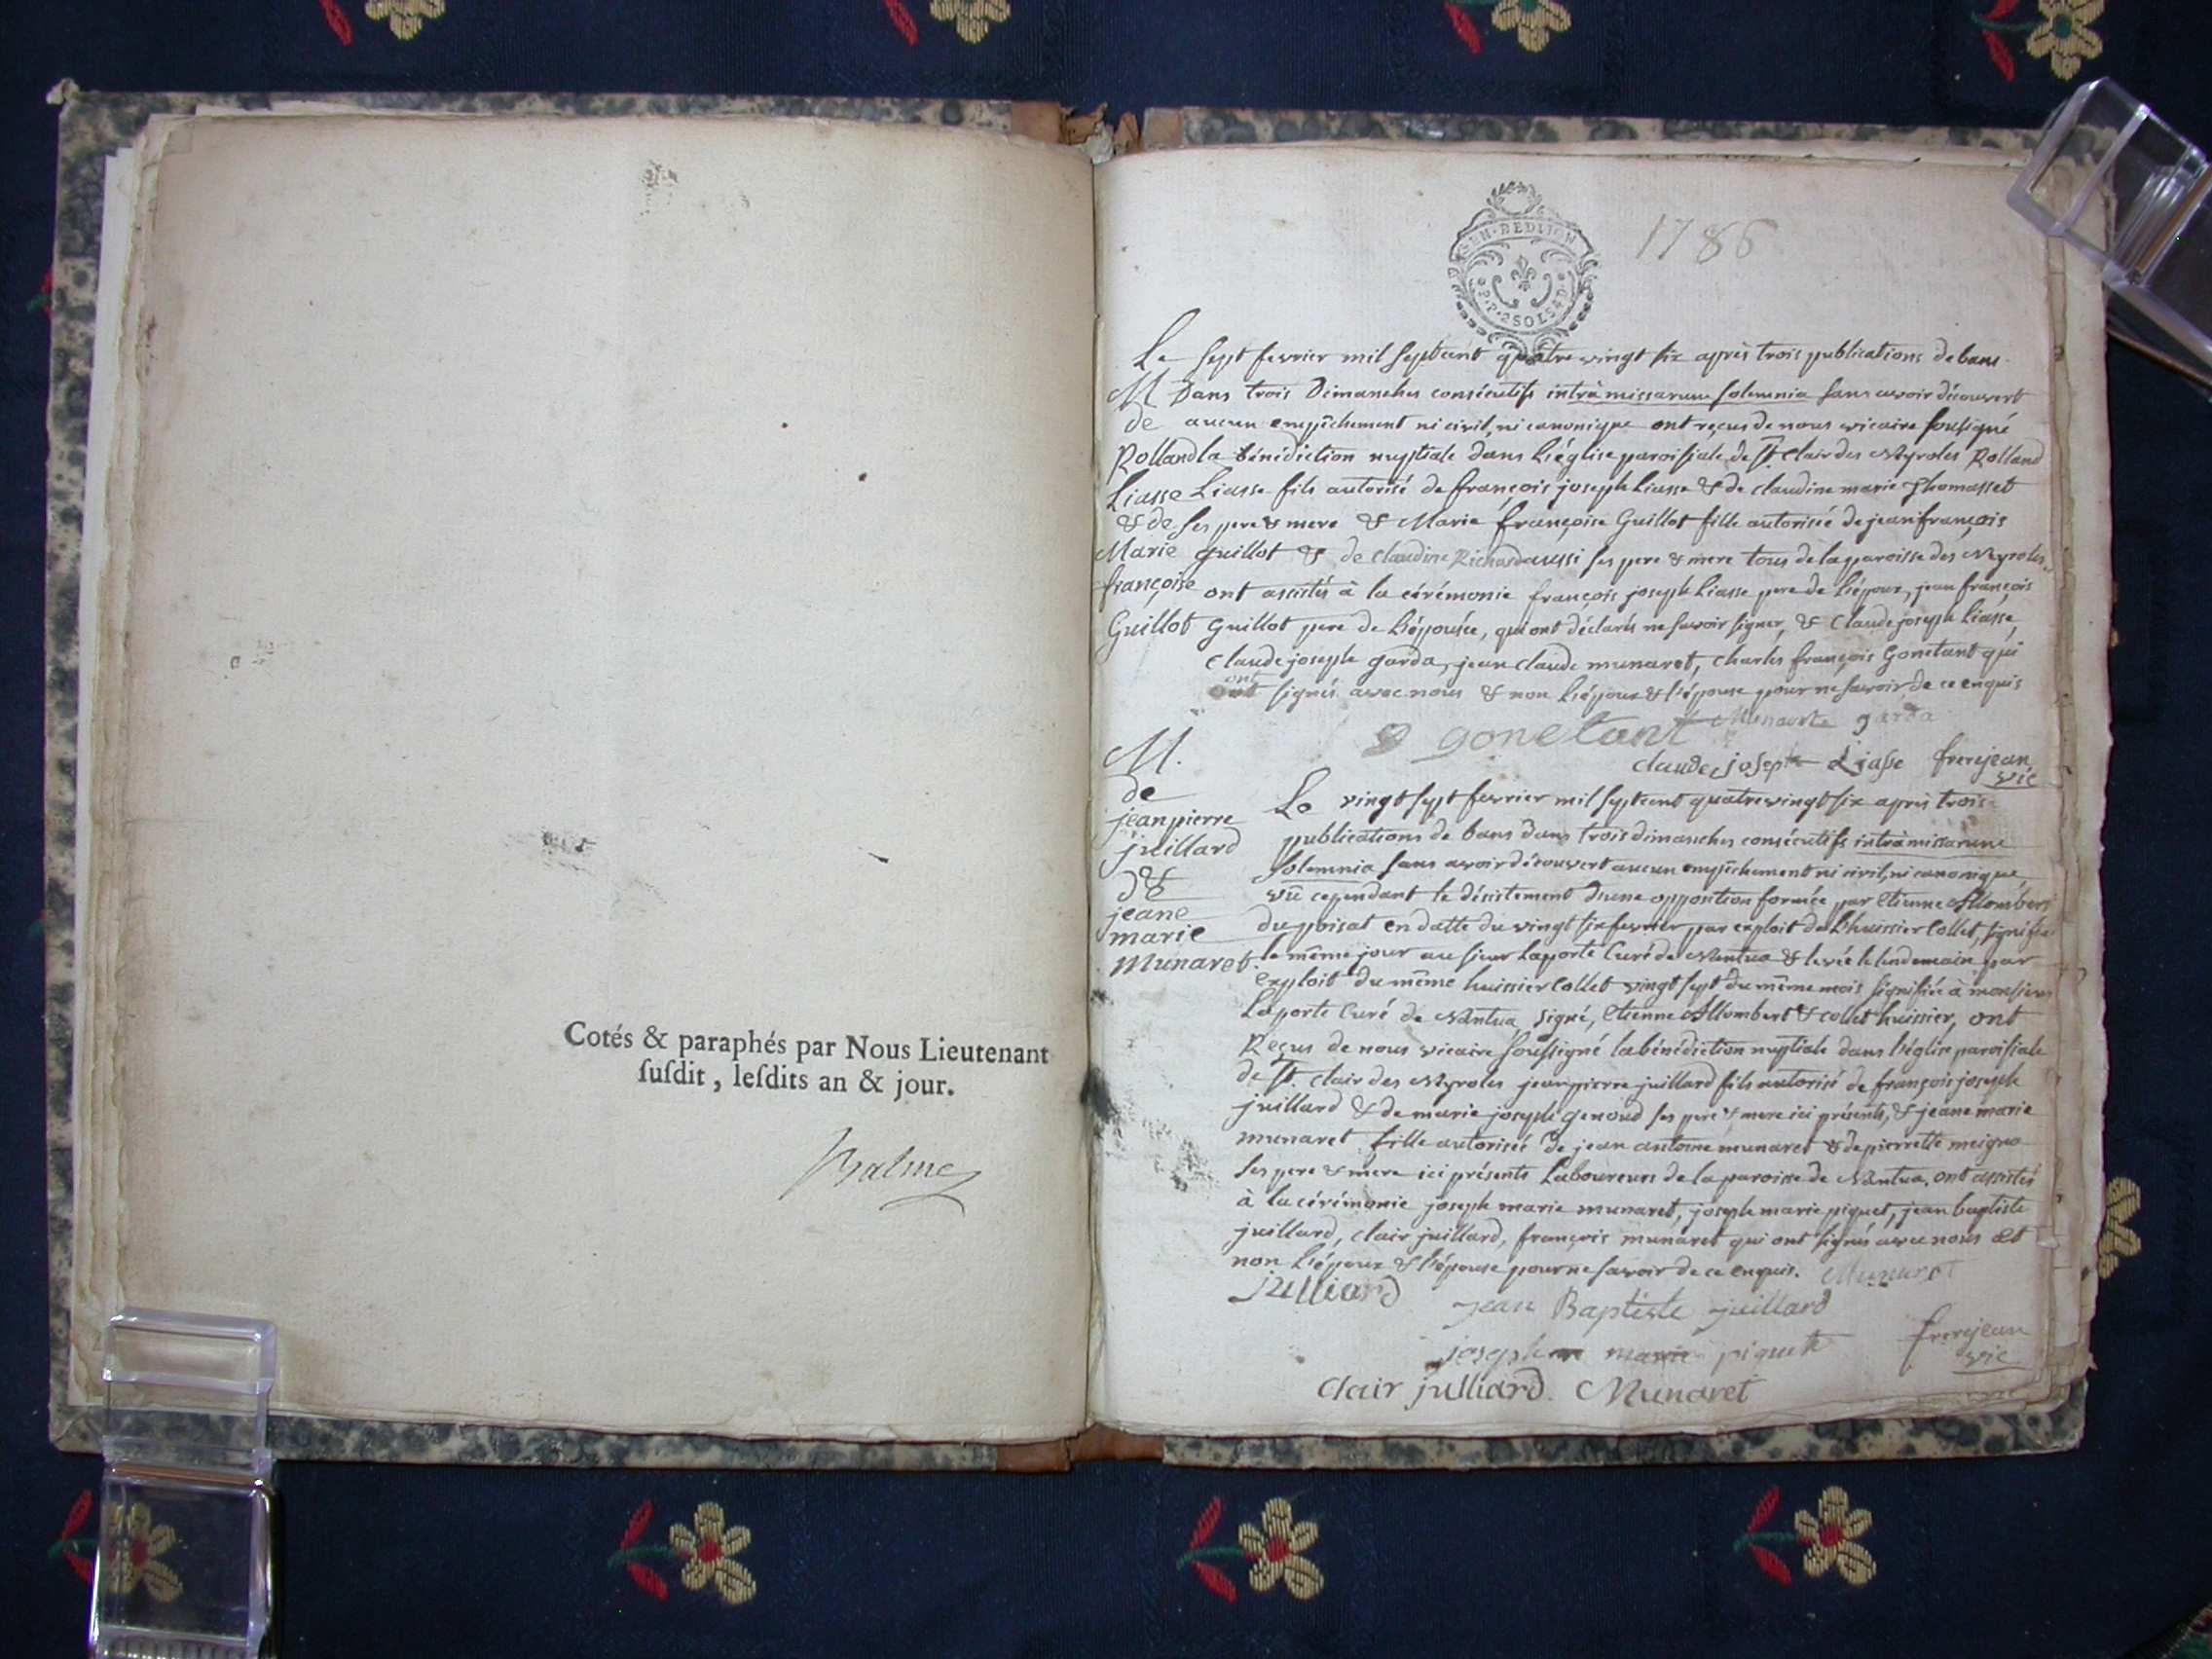 Cotés & paraphés par Nous Lieutenant
susdit, lesdits an & jour.
Balme
GEN·DEDIJON
P.P. 2 SOLS 4 D
1786
Le sept fevrier mil septcent quatre vingt six après trois publications de bans
M Dans trois Dimanches consécutifs intrà missarum solemnia sans avoir découvert
de aucun empêchement ni civil, ni canonique ont reçus de nous vicaire sousigné
Rolland la bénédiction nuptiale dans l'église paroissiale de St. Clair des Neyroles Rolland
Liasse Liasse fils autorisé de françois joseph Liasse & de claudine marie Thomasset
& de ses pere & mere & Marie françoise Guillot fille autorisée de jean françois
Marie guillot & de Claudine Richard aussi ses pere & mere tous de la paroisse des Neyroles
françoise ont assistés à la cérémonie françois joseph Liasse pere de l'époux, jean françois
Guillot Guillot pere de l'épousée, qui ont déclarés ne savoir signer, & Claude joseph Liasse,
Claude joseph garda, jean claude munaret, charles françois Gonetant qui
ont signés avec nous & non l'époux & l'épouse pour ne savoir de ce enquis
gonetant Munarete garda
claude joseph Liasse frerejean
vic
M.
de
jeanpierre
juillard
&
jeane
marie
Munaret
Le vingt sept fevrier mil septcent quatrevingt six après trois
publications de bans dans trois dimanches consécutifs intrà missarum
solemnia sans avoir découvert aucun empêchement ni civil, ni canonique,
vû cependant le désistement d'une opposition formée par Etienne Allombert
du poisat en datte du vingt six fevrier par exploit de l'huissier Collet, signifiée
le même jour au sieur Laporte Curé de Nantua & levée le lendemain par
exploit du même huissier Collet vingt sept du même mois signifiée à monsieur
Laporte Curé de Nantua, signé, Etienne Allombert & collet huissier, ont
Reçus de nous vicaire soussigné la bénédiction nuptiale dans l'église paroissiale
de St. Clair des Neyroles jeanpierre juillard fils autorisé de françois joseph
juillard & de marie joseph genoud ses pere & mere ici présents, & jeane marie
munaret fille autorisée de jean antoine munaret & de pierrette meigno
ses pere & mere ici présents Laboureurs de la paroisse de Nantua, ont assistés
à la cérémonie joseph marie munaret, joseph marie piquet, jean baptiste
juillard, clair juillard, françois munaret qui ont signés avec nous et
non l'époux & l'épouse pour ne savoir de ce enquis. Munaret
julliard jean Baptiste juillard
joseph marie piquet frerejean
vic
Clair julliard. Munaret